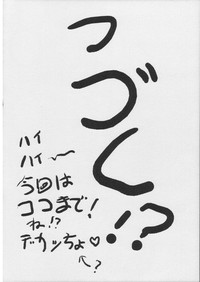 つづく!?
ハイ
ハイ〜
今回は
ココまで!
ね!?
デカンちょ♡
←?